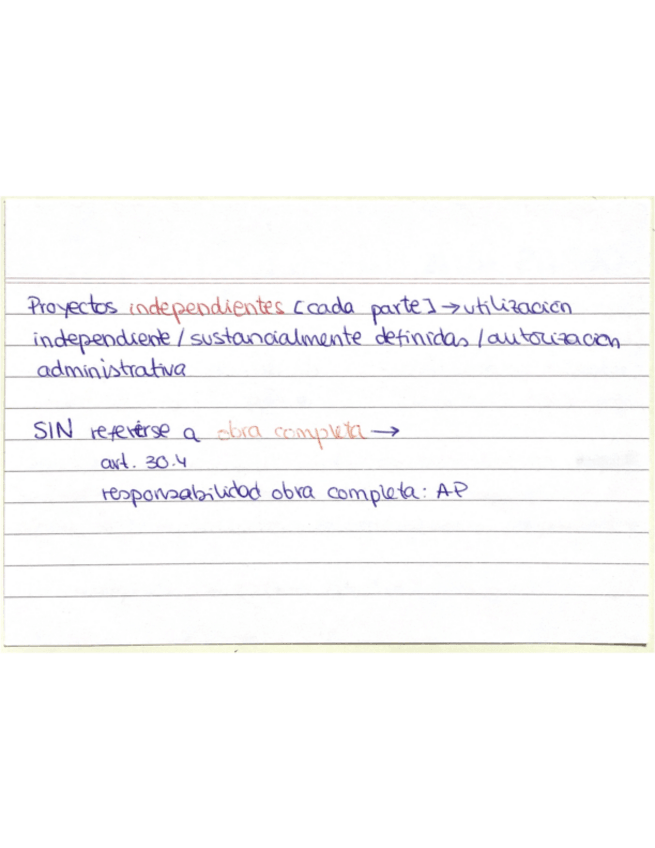 Proyectos independientes [cada parte] → utilización
independiente / sustancialmente definidas / autorización
administrativa
SIN referirse a obra completa →
art. 30.4
responsabilidad obra completa: AP